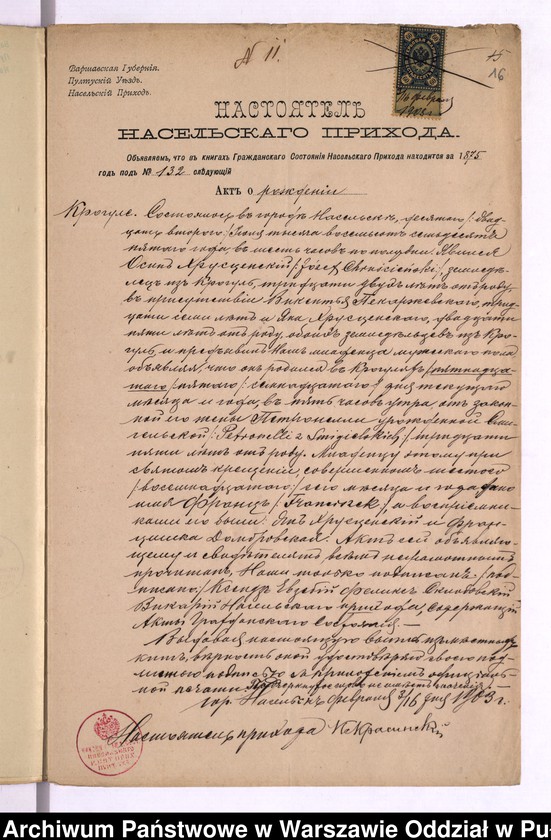 № 11.
15
16
Варшавская Губернія.
Пултускій Уѣздъ.
Насельскій Приходъ.
3/16 февраля
1903 г.
НАСТОЯТЕЛЬ
НАСЕЛЬСКАГО ПРИХОДА.
Объявляемъ, что въ книгахъ Гражданскаго Состоянія Насельскаго Прихода находится за 1875
годъ подъ № 132 слѣдующій
Актъ о рожденіи
Состоялось въ городѣ Насельскѣ,
Іюля тысяча восемьсотъ семьдесятъ
пятаго года, въ шесть часовъ по полудни. Явился
Осипъ Хрусценскій /Józef Chruściński/ земледѣ-
лецъ изъ тридцати двухъ лѣтъ отъ роду,
въ присутствіи Викентія Пекаржевскаго, трид-
цати семи лѣтъ и Яна Хрусценскаго, двадцати
пяти лѣтъ отъ роду, обоихъ земледѣльцевъ изъ Кро-
и предъявилъ Намъ младенца мужескаго пола
объявляя, что онъ родился въ /пятнадца-
таго/ пятаго / семнадцатаго / дня текущаго
мѣсяца и года, въ пять часовъ утра, отъ закон-
ной его жены Петронели урожденной Сми-
гельской /Petroneli z Śmigielskich/ тридцати
пяти лѣтъ отъ роду. Младенцу этому при
святомъ крещеніи, совершенномъ шестого
/восемнадцатаго/ сего мѣсяца и года дано
имя Францъ /Franciszek/, а воспріемни-
ками его были: Янъ Хрусценскій и Фран-
цишка Домбровская. Актъ сей объявляю-
щему и свидѣтелямъ всѣмъ неграмотнымъ
прочитанъ, Нами только подписанъ. /под-
писано/ Ксендзъ Феликсъ
Викарій Насельскаго прихода Содержащій
Акты Гражданскаго Состоянія. —
Выдавая настоящую выпись
вѣрность оной удостовѣряю своею под-
писью съ приложеніемъ
ной печати
гор. Насельскъ Февраля 3/16 дня 1903 г.
Настоятель прихода К. Красинскій
Archiwum Państwowe w Warszawie Oddział w Pu